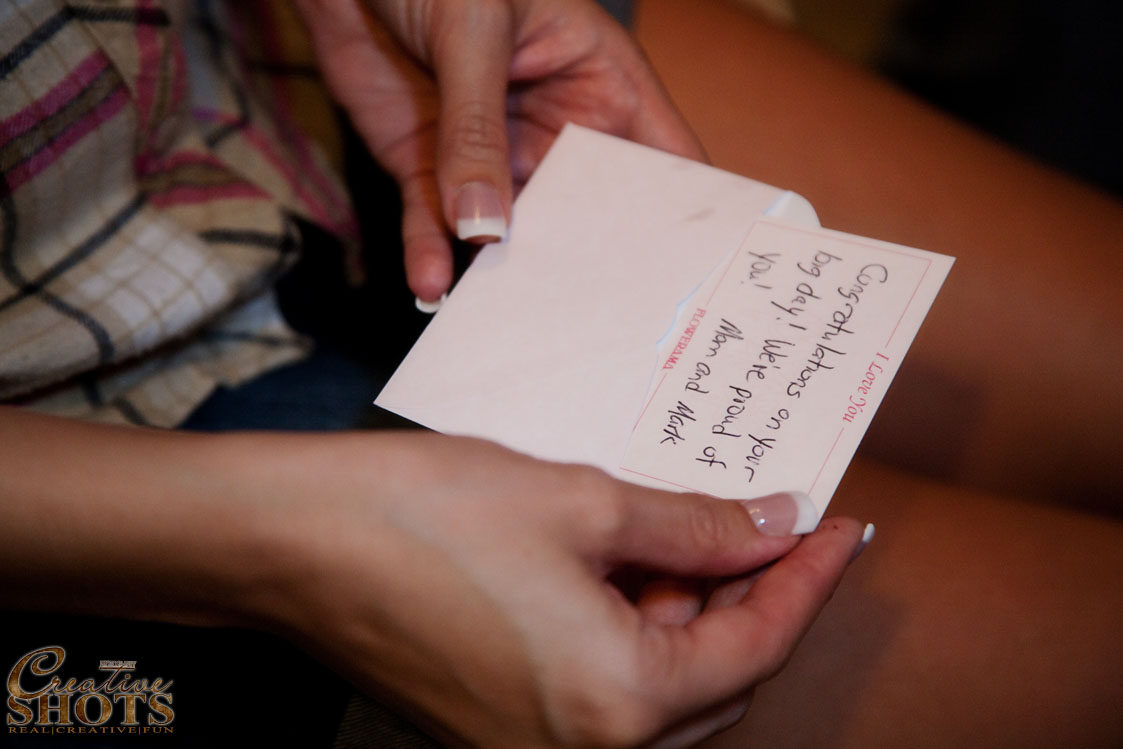 I Love You
Congratulations on your
big day! We're proud of
you!
Mom and Mark
FLOWERAMA
Creative
SHOTS
REAL|CREATIVE|FUN